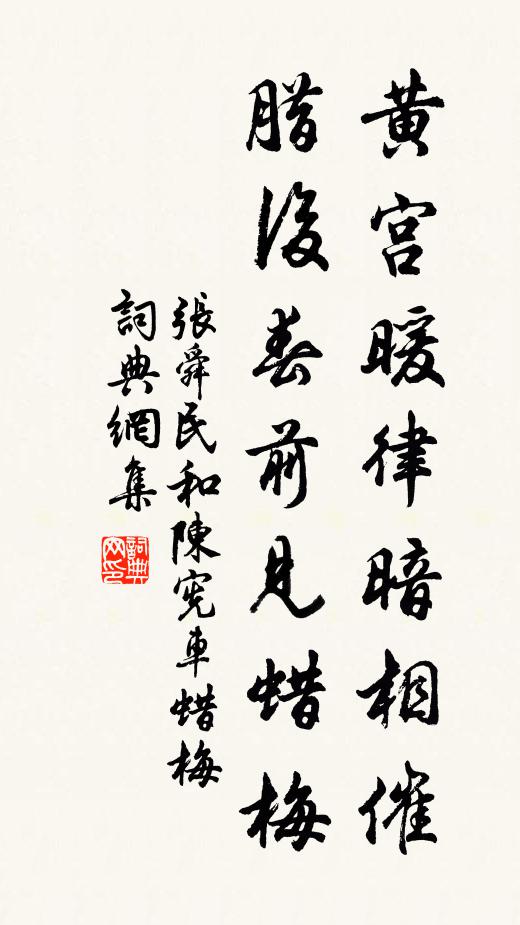 黄宫暖律暗相催
腊後春前見蜡梅
張舜民和陳寃車蜡梅
詞典網集
詞典网印